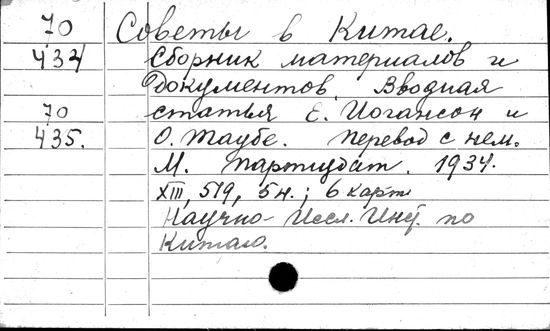 70 Советы в Китае.
434 Сборник материалов и
документов. Вводная
70 статья Е. Иогансон и
435. О. Таубе. Перевод с нем.
М. Партиздат. 1934.
XIII, 519, 5 н.; 6 карт
Научно-Иссл. Инт. по
Китаю.